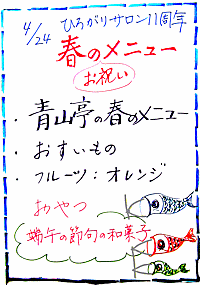 4/24 ひろがりサロン11周年
春のメニュー
お祝い
・青山亭の春のメニュー
・おすいもの
・フルーツ：オレンジ
おやつ
端午の節句の和菓子